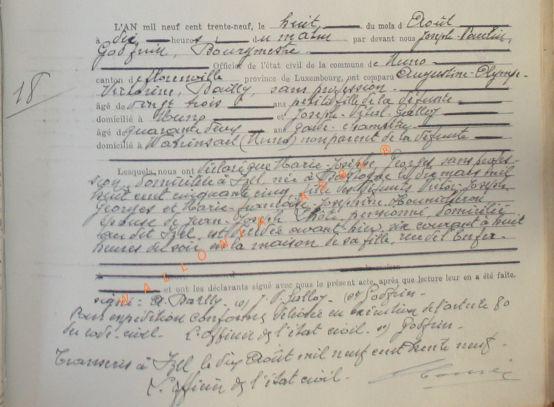 18
L'AN mil neuf cent trente-neuf, le huit du mois d'Août
à dix heures du matin par devant nous Joseph Paulin
Godfrin, Bourgmestre
Officier de l'état civil de la commune de Muno
canton de Florenville province de Luxembourg, ont comparu Augustine-Olympe-
Victorine, Bailly, sans profession
âgé de vingt trois ans petite fille de la défunte
domicilié à Muno et Joseph
âgé de quarante deux ans garde-champêtre
domicilié à Watrinsart (Muno) non parent de la défunte
Lesquels nous ont déclaré que Marie-Josèphe Georges sans profes-
sion, domiciliée à Izel, née à le dix mars mil
huit cent cinquante cinq, fille des défunts Joseph
Georges et Marie-Françoise-Joséphine
épouse de Jean-Joseph pensionné, domicilié
au dit Izel, est décédée avant hier, six courant à huit
heures du soir en la maison de sa fille, rue del Enfer.
et ont les déclarants signé avec nous le présent acte, après que lecture leur en a été faite.
signé: A. Bailly. (s) J. (s) Godfrin.
Pour expédition conforme, délivrée en exécution de l'article 80
du code civil. L'officier de l'état civil. (s) Godfrin.
Transcrit à Izel le dix Août mil neuf cent trente neuf.
L'officier de l'état civil.